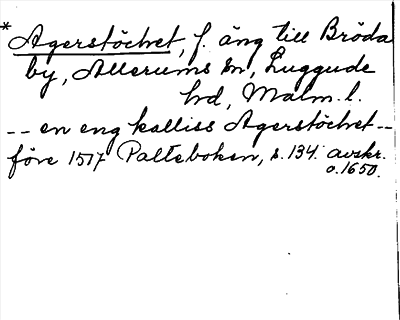 * Agerstöchet, f. äng till Bröda
by, Allerums sn, Luggude
hd, Malm. l.
-- en eng kalliss Agerstöchet --
före 1517 Palteboken, s. 134. avskr.
o. 1650.